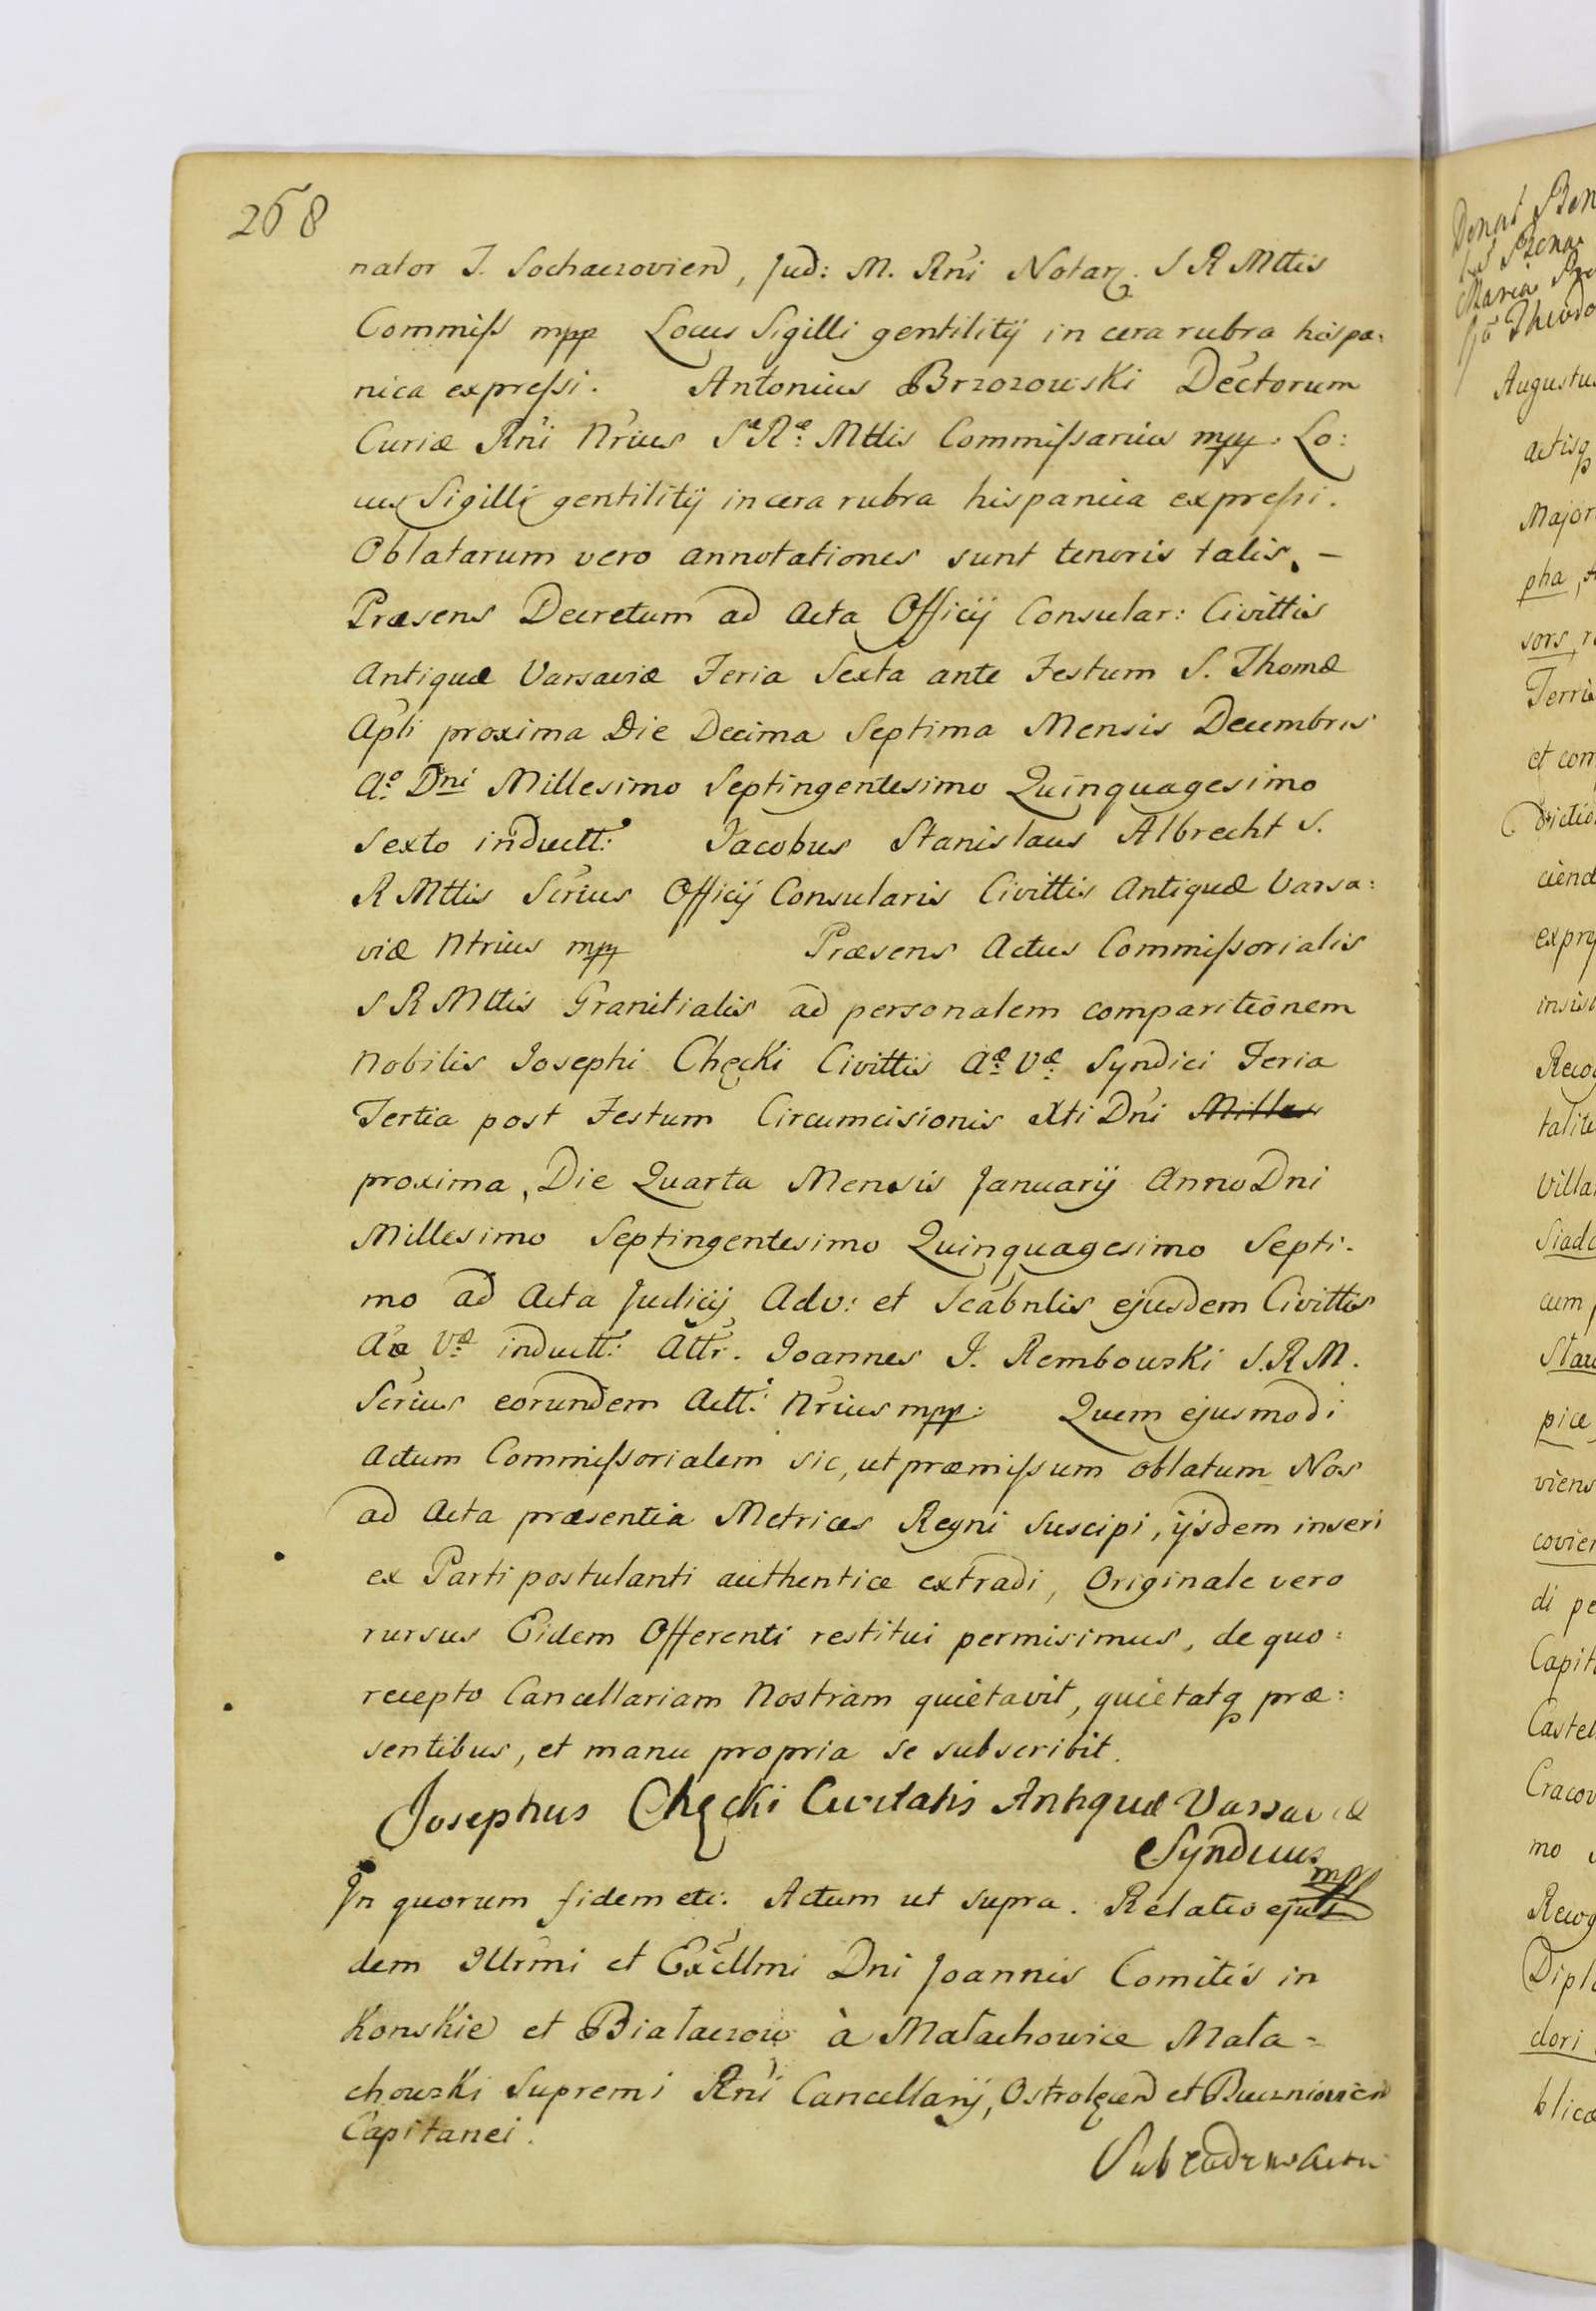 268
nator T. Sochaczoviens, Jud: M. Rni Notarz. S R Mttis
Commiss mpp Locus Sigilli gentilitij in cera rubra hispa:
nica expressi. Antonius Brzozowski Dectorum
Curiæ Rni Nrius Sæ Ræ Mttis Commissarius mpp. Lo:
cus Sigilli gentilitij in cera rubra hispanica expressi.
Oblatarum vero annotationes sunt tenoris talis. –
Præsens Decretum ad Acta Officij Consular: Civittis
Antiquæ Varsaviæ Feria Sexta ante Festum S. Thomæ
Apli proxima Die Decima Septima Mensis Decembris
Ao Dni Millesimo Septingentesimo Quinquagesimo
Sexto inductt: Jacobus Stanislaus Albrecht S.
R Mttis Scrius Officij Consularis Civittis Antiquæ Varsa:
viæ Ntrius mpp Præsens Actus Commissorialis
S R Mttis Granitialis ad personalem comparitionem
Nobilis Josephi Chęcki Civittis Aæ Væ Syndici Feria
Tertia post Festum Circumcisionis Xti Dni Milles
proxima, Die Quarta Mensis Januarij Anno Dni
Millesimo Septingentesimo Quinquagesimo Septi-
mo ad Acta Judicij Adv: et Scabnlis ejusdem Civittis
Aæ Væ inductt: Attr. Joannes J. Rembowski S.R.M.
Scrius eorundem Actt: Nrius mpp: Quem ejusmodi
Actum Commissorialem sic, ut præmissum oblatum Nos
ad Acta præsentia Metrices Regni Suscipi, ijsdem inseri
ex Parti postulanti authentice extradi, Originale vero
rursus Eidem Offerenti restitui permisimus, de quo:
recepto Cancellariam Nostram quietavit, quietatq præ:
sentibus, et manu propria se subscribit.
Josephus Chęcki Civitatis Antiquæ Varsaviæ
Syndicus
mpp
In quorum fidem etc. Actum ut supra. Relatio ejus
dem Illrmi et Excllmi Dni Joannis Comitis in
Konskie et Białaczow à Małachowice Mała-
chowski Supremi Rni Cancellarij, Ostrołęcen et Buczniovien
Capitanei.